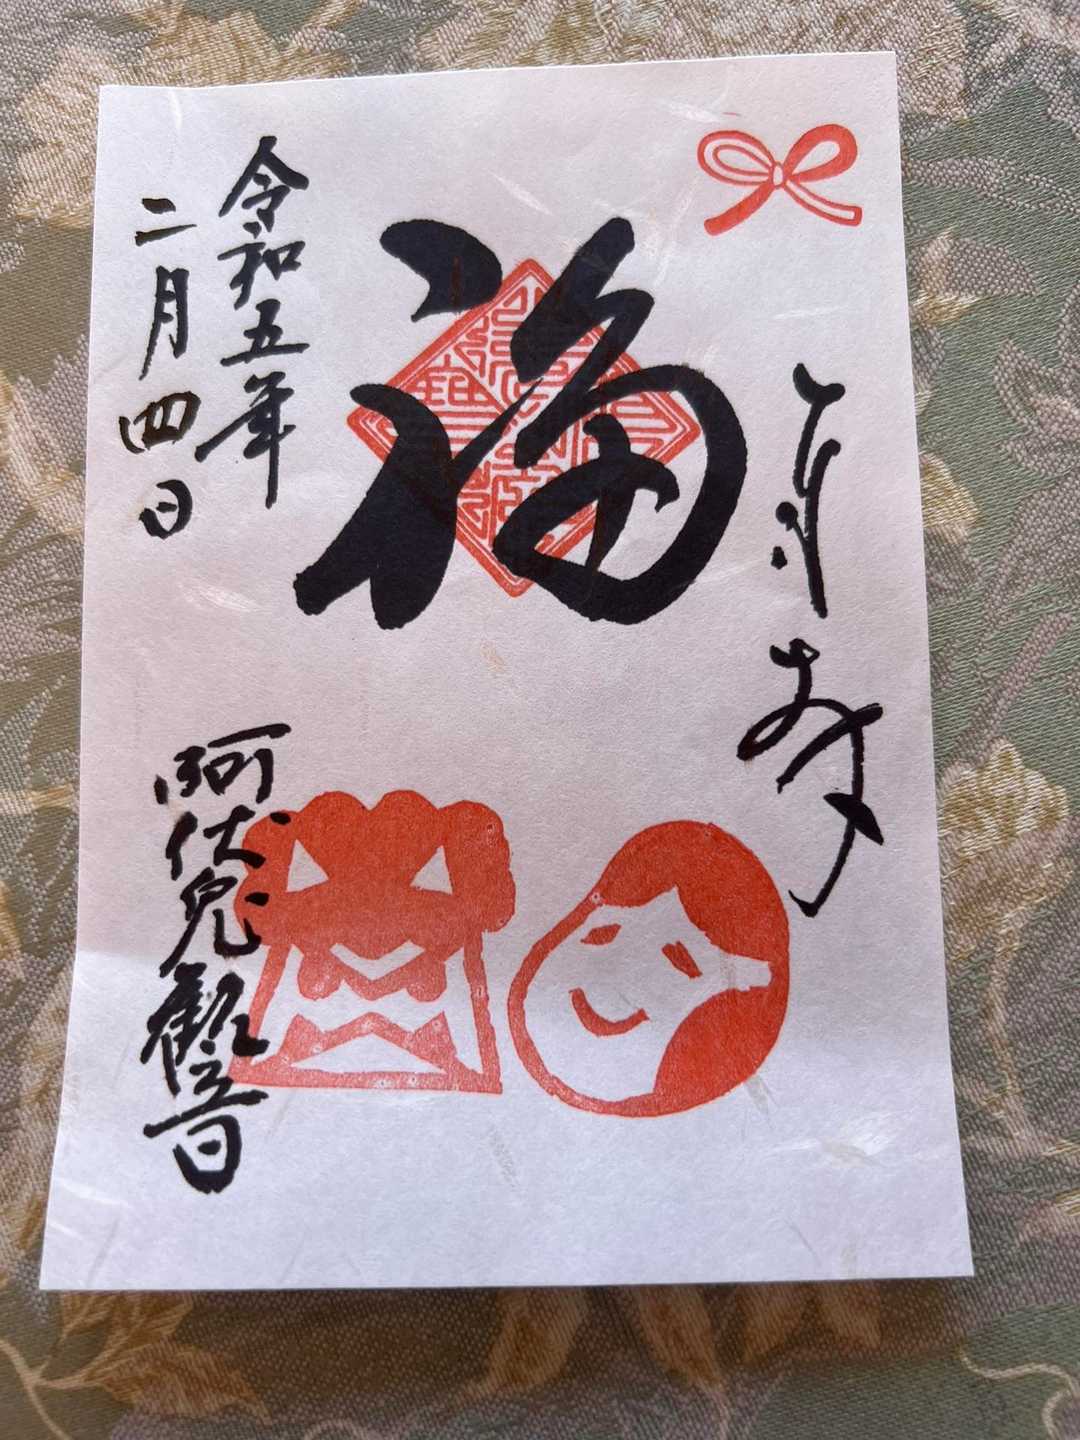 奉拝
福
令和五年
二月四日
阿伏兎観音